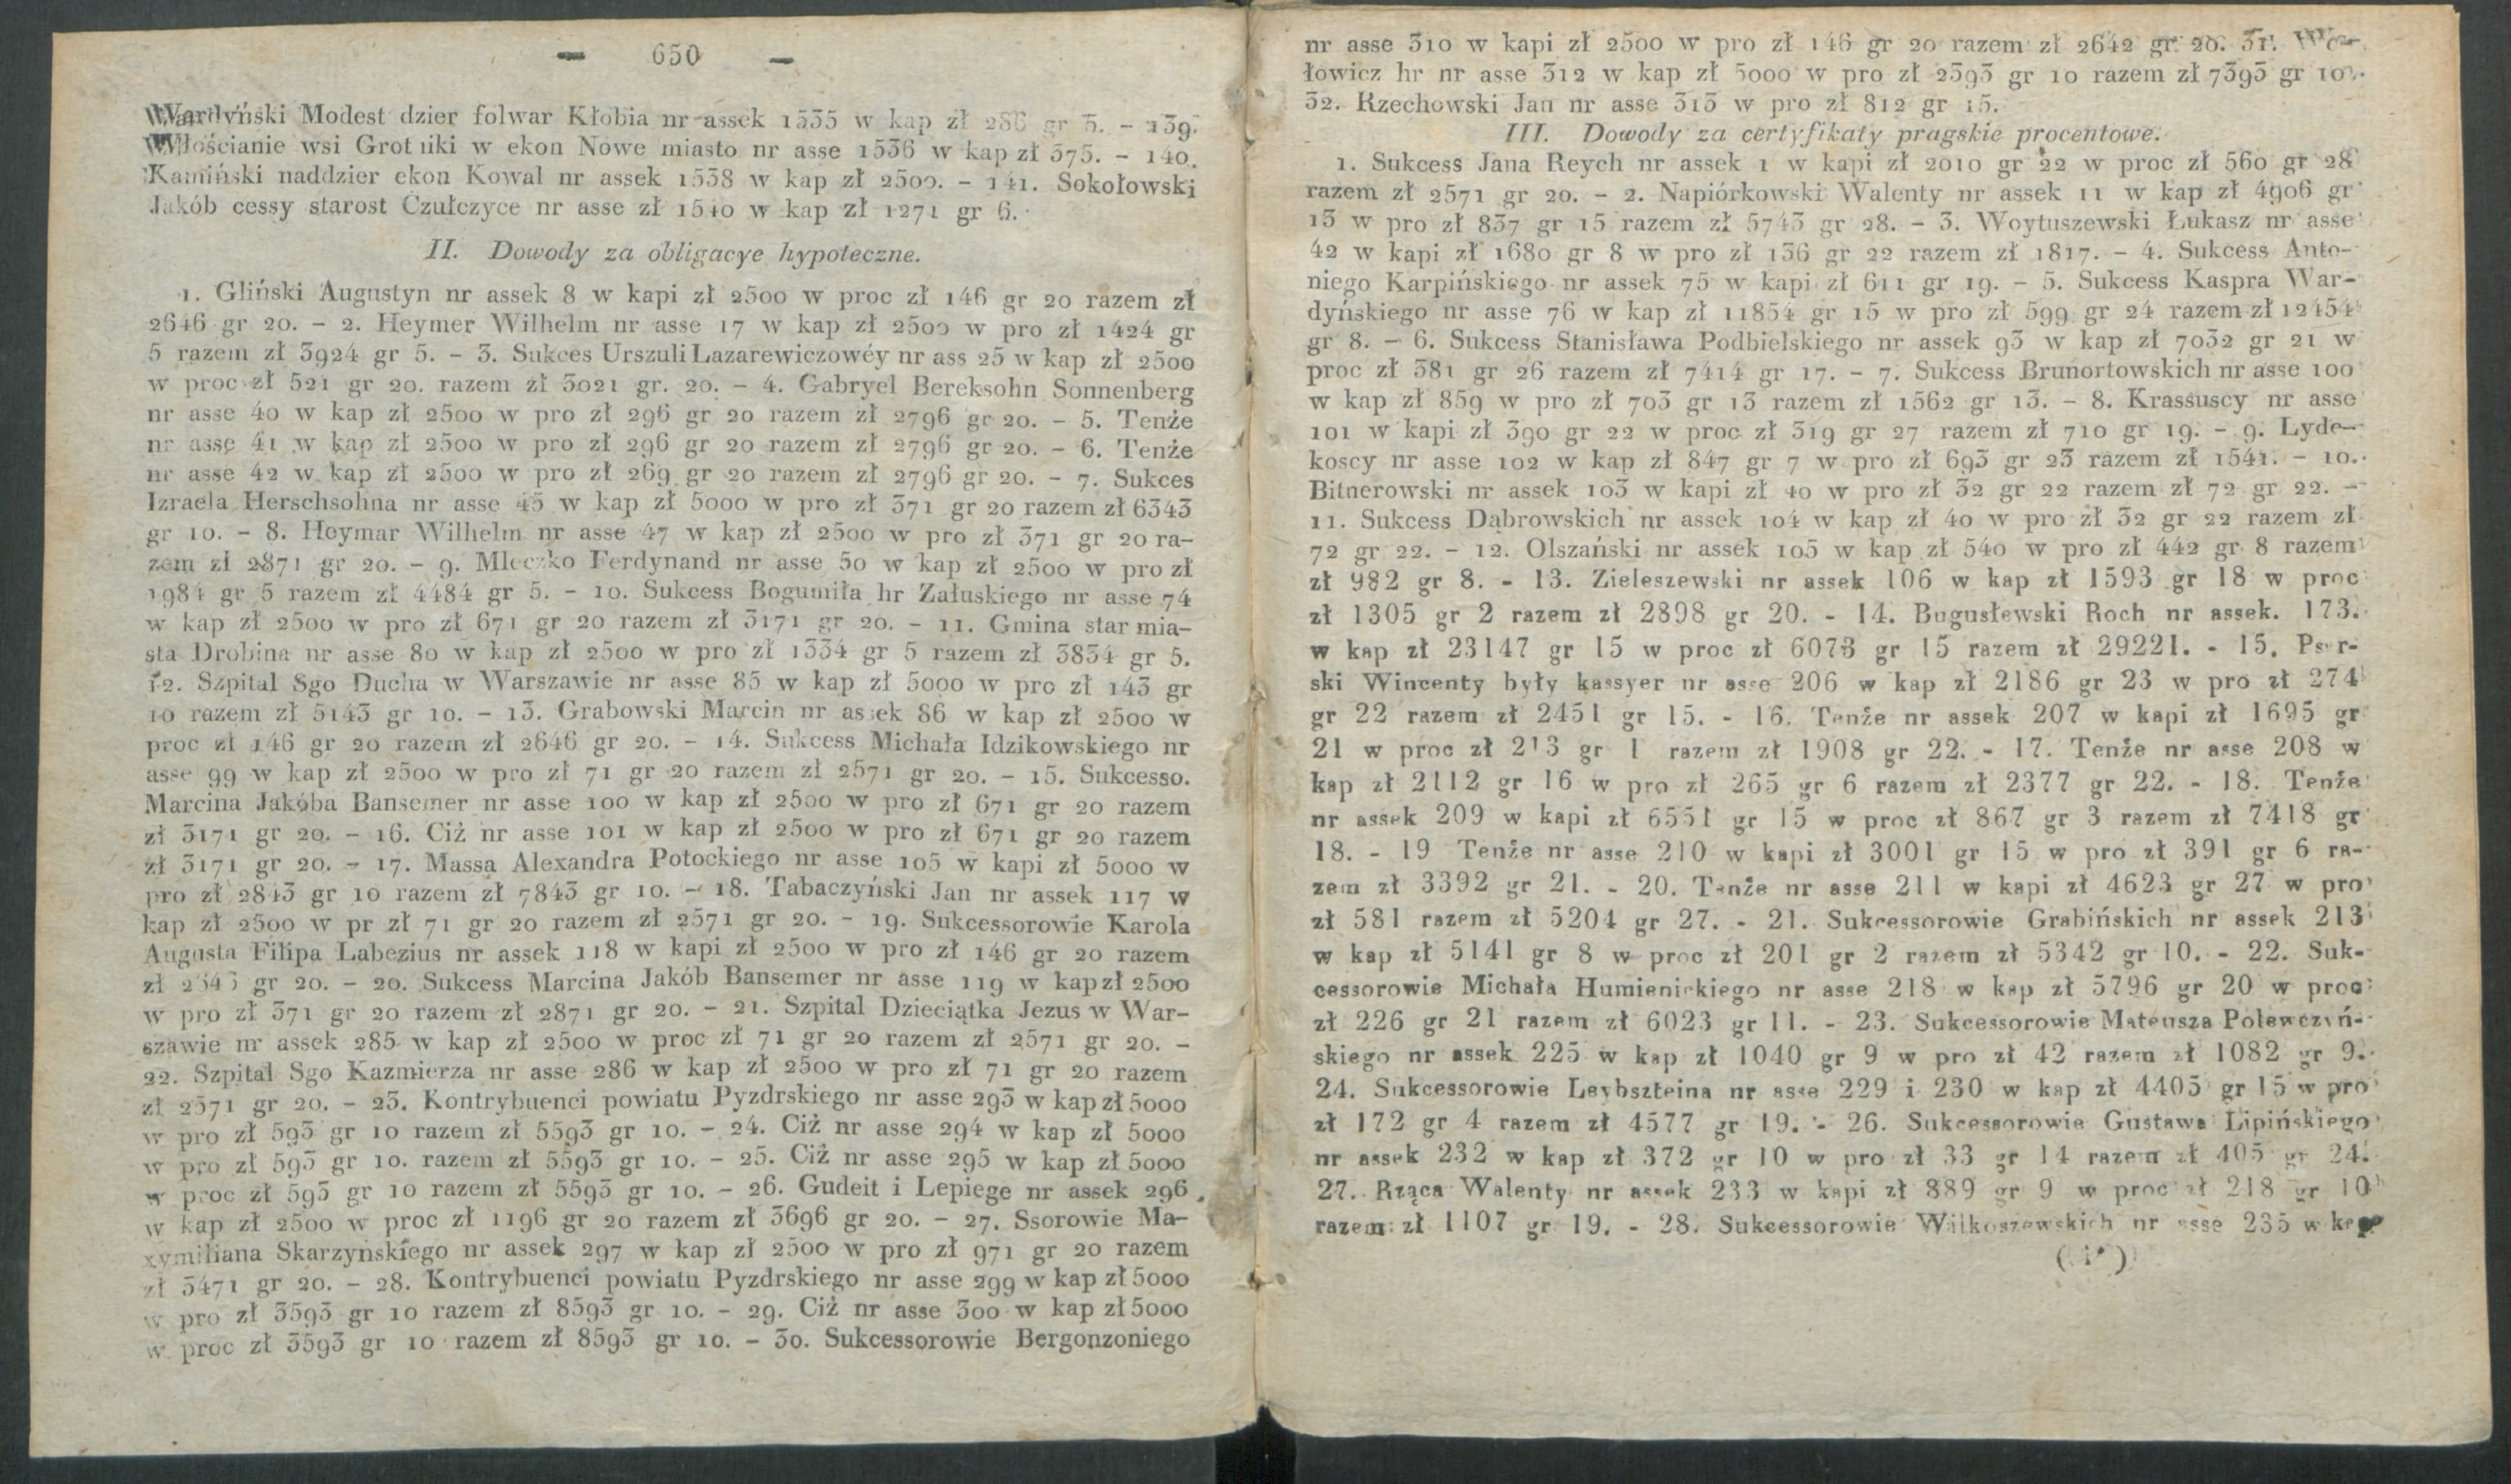 — 650 —
Wardyński Modest dzier folwar Kłobia nr assek 1535 w kap zł 286 gr 5. – 139.
Włościanie wsi Grotniki w ekon Nowe miasto nr asse 1536 w kap zł 375. – 140.
Kamiński naddzier ekon Kowal nr assek 1538 w kap zł 2500. – 141. Sokołowski
Jakób cessy starost Czułczyce nr asse zł 1540 w kap zł 1271 gr 6.
II. Dowody za obligacye hypoteczne.
1. Gliński Augustyn nr assek 8 w kapi zł 2500 w proc zł 146 gr 20 razem zł
2646 gr 20. – 2. Heymer Wilhelm nr asse 17 w kap zł 2500 w pro zł 1424 gr
5 razem zł 3924 gr 5. – 3. Sukces Urszuli Lazarewiczowéy nr ass 25 w kap zł 2500
w proc zł 521 gr 20. razem zł 3021 gr. 20. – 4. Gabryel Bereksohn Sonnenberg
nr asse 40 w kap zł 2500 w pro zł 296 gr 20 razem zł 2796 gr 20. – 5. Tenże
nr asse 41 w kap zł 2500 w pro zł 296 gr 20 razem zł 2796 gr 20. – 6. Tenże
nr asse 42 w kap zł 2500 w pro zł 269 gr 20 razem zł 2796 gr 20. – 7. Sukces
Izraela Herschsohna nr asse 45 w kap zł 5000 w pro zł 371 gr 20 razem zł 6343
gr 10. – 8. Heymar Wilhelm nr asse 47 w kap zł 2500 w pro zł 371 gr 20 ra-
zem zł 2871 gr 20. – 9. Mleczko Ferdynand nr asse 50 w kap zł 2500 w pro zł
1984 gr 5 razem zł 4484 gr 5. – 10. Sukcess Bogumiła hr Załuskiego nr asse 74
w kap zł 2500 w pro zł 671 gr 20 razem zł 3171 gr 20. – 11. Gmina star mia-
sta Drobina nr asse 80 w kap zł 2500 w pro zł 1334 gr 5 razem zł 3834 gr 5.
12. Szpital Sgo Ducha w Warszawie nr asse 85 w kap zł 5000 w pro zł 143 gr
10 razem zł 5143 gr 10. – 13. Grabowski Marcin nr assek 86 w kap zł 2500 w
proc zł 146 gr 20 razem zł 2646 gr 20. – 14. Sukcess Michała Idzikowskiego nr
asse 99 w kap zł 2500 w pro zł 71 gr 20 razem zł 2571 gr 20. – 15. Sukcesso.
Marcina Jakóba Bansemer nr asse 100 w kap zł 2500 w pro zł 671 gr 20 razem
zł 3171 gr 20. – 16. Ciż nr asse 101 w kap zł 2500 w pro zł 671 gr 20 razem
zł 3171 gr 20. – 17. Massa Alexandra Potockiego nr asse 105 w kapi zł 5000 w
pro zł 2843 gr 10 razem zł 7843 gr 10. – 18. Tabaczyński Jan nr assek 117 w
kap zł 2500 w pr zł 71 gr 20 razem zł 2571 gr 20. – 19. Sukcessorowie Karola
Augusta Filipa Labezius nr assek 118 w kapi zł 2500 w pro zł 146 gr 20 razem
zł gr 20. – 20. Sukcess Marcina Jakób Bansemer nr asse 119 w kap zł 2500
w pro zł 371 gr 20 razem zł 2871 gr 20. – 21. Szpital Dzieciątka Jezus w War-
szawie nr assek 285 w kap zł 2500 w proc zł 71 gr 20 razem zł 2571 gr 20. –
22. Szpital Sgo Kazmierza nr asse 286 w kap zł 2500 w pro zł 71 gr 20 razem
zł 2571 gr 20. – 23. Kontrybuenci powiatu Pyzdrskiego nr asse 293 w kap zł 5000
w pro zł 593 gr 10 razem zł 5593 gr 10. – 24. Ciż nr asse 294 w kap zł 5000
w pro zł 593 gr 10. razem zł 5593 gr 10. – 25. Ciż nr asse 295 w kap zł 5000
w proc zł 593 gr 10 razem zł 5593 gr 10. – 26. Gudeit i Lepiege nr assek 296
w kap zł 2500 w proc zł 1196 gr 20 razem zł 3696 gr 20. – 27. Ssorowie Ma-
xymiliana Skarzyńskiego nr assek 297 w kap zł 2500 w pro zł 971 gr 20 razem
zł 3471 gr 20. – 28. Kontrybuenci powiatu Pyzdrskiego nr asse 299 w kap zł 5000
w pro zł 3593 gr 10 razem zł 8593 gr 10. – 29. Ciż nr asse 300 w kap zł 5000
w proc zł 3593 gr 10 razem zł 8593 gr 10. – 30. Sukcessorowie Bergonzoniego
nr asse 310 w kapi zł 2500 w pro zł 146 gr 20 razem zł 2642 gr. 20. 31.
łowicz hr nr asse 312 w kap zł 5000 w pro zł 2393 gr 10 razem zł 7393 gr 10.
32. Rzechowski Jan nr asse 313 w pro zł 812 gr 15.
III. Dowody za certyfikaty pragskie procentowe.
1. Sukcess Jana Reych nr assek 1 w kapi zł 2010 gr 22 w proc zł 560 gr 28
razem zł 2571 gr 20. – 2. Napiórkowski Walenty nr assek 11 w kap zł 4906 gr
13 w pro zł 837 gr 15 razem zł 5743 gr 28. – 3. Woytuszewski Łukasz nr asse
42 w kapi zł 1680 gr 8 w pro zł 136 gr 22 razem zł 1817. – 4. Sukcess Anto-
niego Karpińskiego nr assek 75 w kapi zł 611 gr 19. – 5. Sukcess Kaspra War-
dyńskiego nr asse 76 w kap zł 11854 gr 15 w pro zł 599 gr 24 razem zł 12454
gr 8. – 6. Sukcess Stanisława Podbielskiego nr assek 93 w kap zł 7032 gr 21 w
proc zł 381 gr 26 razem zł 7414 gr 17. – 7. Sukcess Brunortowskich nr asse 100
w kap zł 859 w pro zł 703 gr 13 razem zł 1562 gr 13. – 8. Krassuscy nr asse
101 w kapi zł 390 gr 22 w proc zł 319 gr 27 razem zł 710 gr 19. – 9. Lyde-
koscy nr asse 102 w kap zł 847 gr 7 w pro zł 693 gr 23 razem zł 1541. – 10.
Bitnerowski nr assek 103 w kapi zł 40 w pro zł 32 gr 22 razem zł 72 gr 22. –
11. Sukcess Dąbrowskich nr assek 104 w kap zł 40 w pro zł 32 gr 22 razem zł
72 gr 22. – 12. Olszański nr assek 105 w kap zł 540 w pro zł 442 gr 8 razem
zł 982 gr 8. - 13. Zieleszewski nr assek 106 w kap zł 1593 gr 18 w proc
zł 1305 gr 2 razem zł 2898 gr 20. - 14. Bugusłewski Roch nr assek. 173.
w kap zł 23147 gr 15 w proc zł 6073 gr 15 razem zł 29221. - 15.
ski Wincenty były kassyer nr asse 206 w kap zł 2186 gr 23 w pro zł 274
gr 22 razem zł 2451 gr 15. - 16. Tenże nr assek 207 w kapi zł 1695 gr
21 w proc zł 213 gr 1 razem zł 1908 gr 22. - 17. Tenże nr asse 208 w
kap zł 2112 gr 16 w pro zł 265 gr 6 razem zł 2377 gr 22. - 18. Tenże
nr assek 209 w kapi zł 6551 gr 15 w proc zł 867 gr 3 razem zł 7418 gr
18. - 19 Tenże nr asse 210 w kapi zł 3001 gr 15 w pro zł 391 gr 6 ra-
zem zł 3392 gr 21. - 20. Tenże nr asse 211 w kapi zł 4623 gr 27 w pro
zł 581 razem zł 5204 gr 27. - 21. Sukcessorowie Grabińskich nr assek 213
w kap zł 5141 gr 8 w proc zł 201 gr 2 razem zł 5342 gr 10. - 22. Suk-
cessorowie Michała Humienickiego nr asse 218 w kap zł 5796 gr 20 w proc
zł 226 gr 21 razem zł 6023 gr 11. - 23. Sukcessorowie Mateusza Polewczyń-
skiego nr assek 225 w kap zł 1040 gr 9 w pro zł 42 razem zł 1082 gr 9.
24. Sukcessorowie Leybszteina nr asse 229 i 230 w kap zł 4405 gr 15 w pro
zł 172 gr 4 razem zł 4577 gr 19. - 26. Sukcessorowie Gustawa Lipińskiego
nr assek 232 w kap zł 372 gr 10 w pro zł 33 gr 14 razem zł 405 gr 24.
27. Rząca Walenty nr assek 233 w kapi zł 889 gr 9 w proc zł 218 gr 10
razem zł 1107 gr 19. - 28. Sukcessorowie Wilkoszewskich nr asse 235 w kap